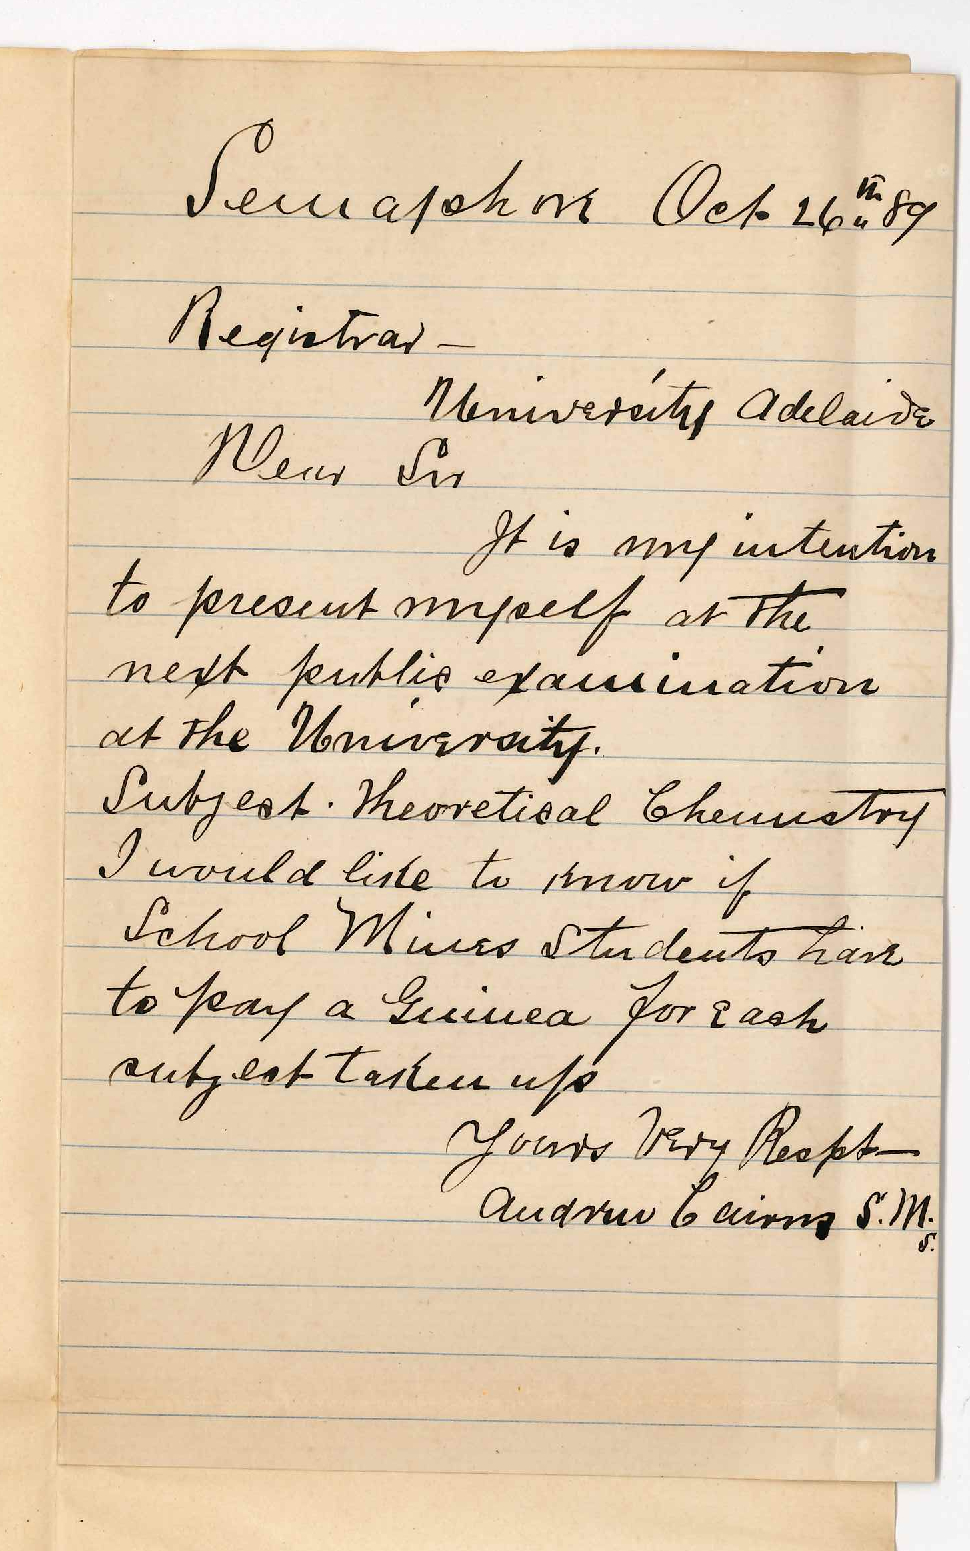 Semaphore Oct 26th 89
Registrar —
University Adelaide
Dear Sir
It is my intention
to present myself at the
next public examination
at the University.
Subject. Theoretical Chemistry
I would like to know if
School Mines Students have
to pay a Guinea for each
subject taken up
Yours Very Respt—
Andrew Cairns S.M.
S.